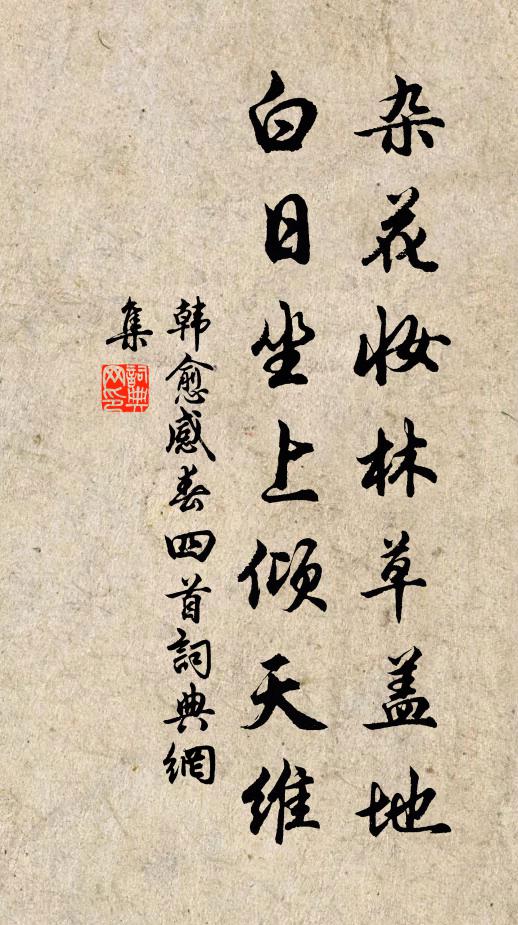 杂花妆林草盖地
白日坐上倾天维
韩愈感春四首詞典網
集
詞典網印